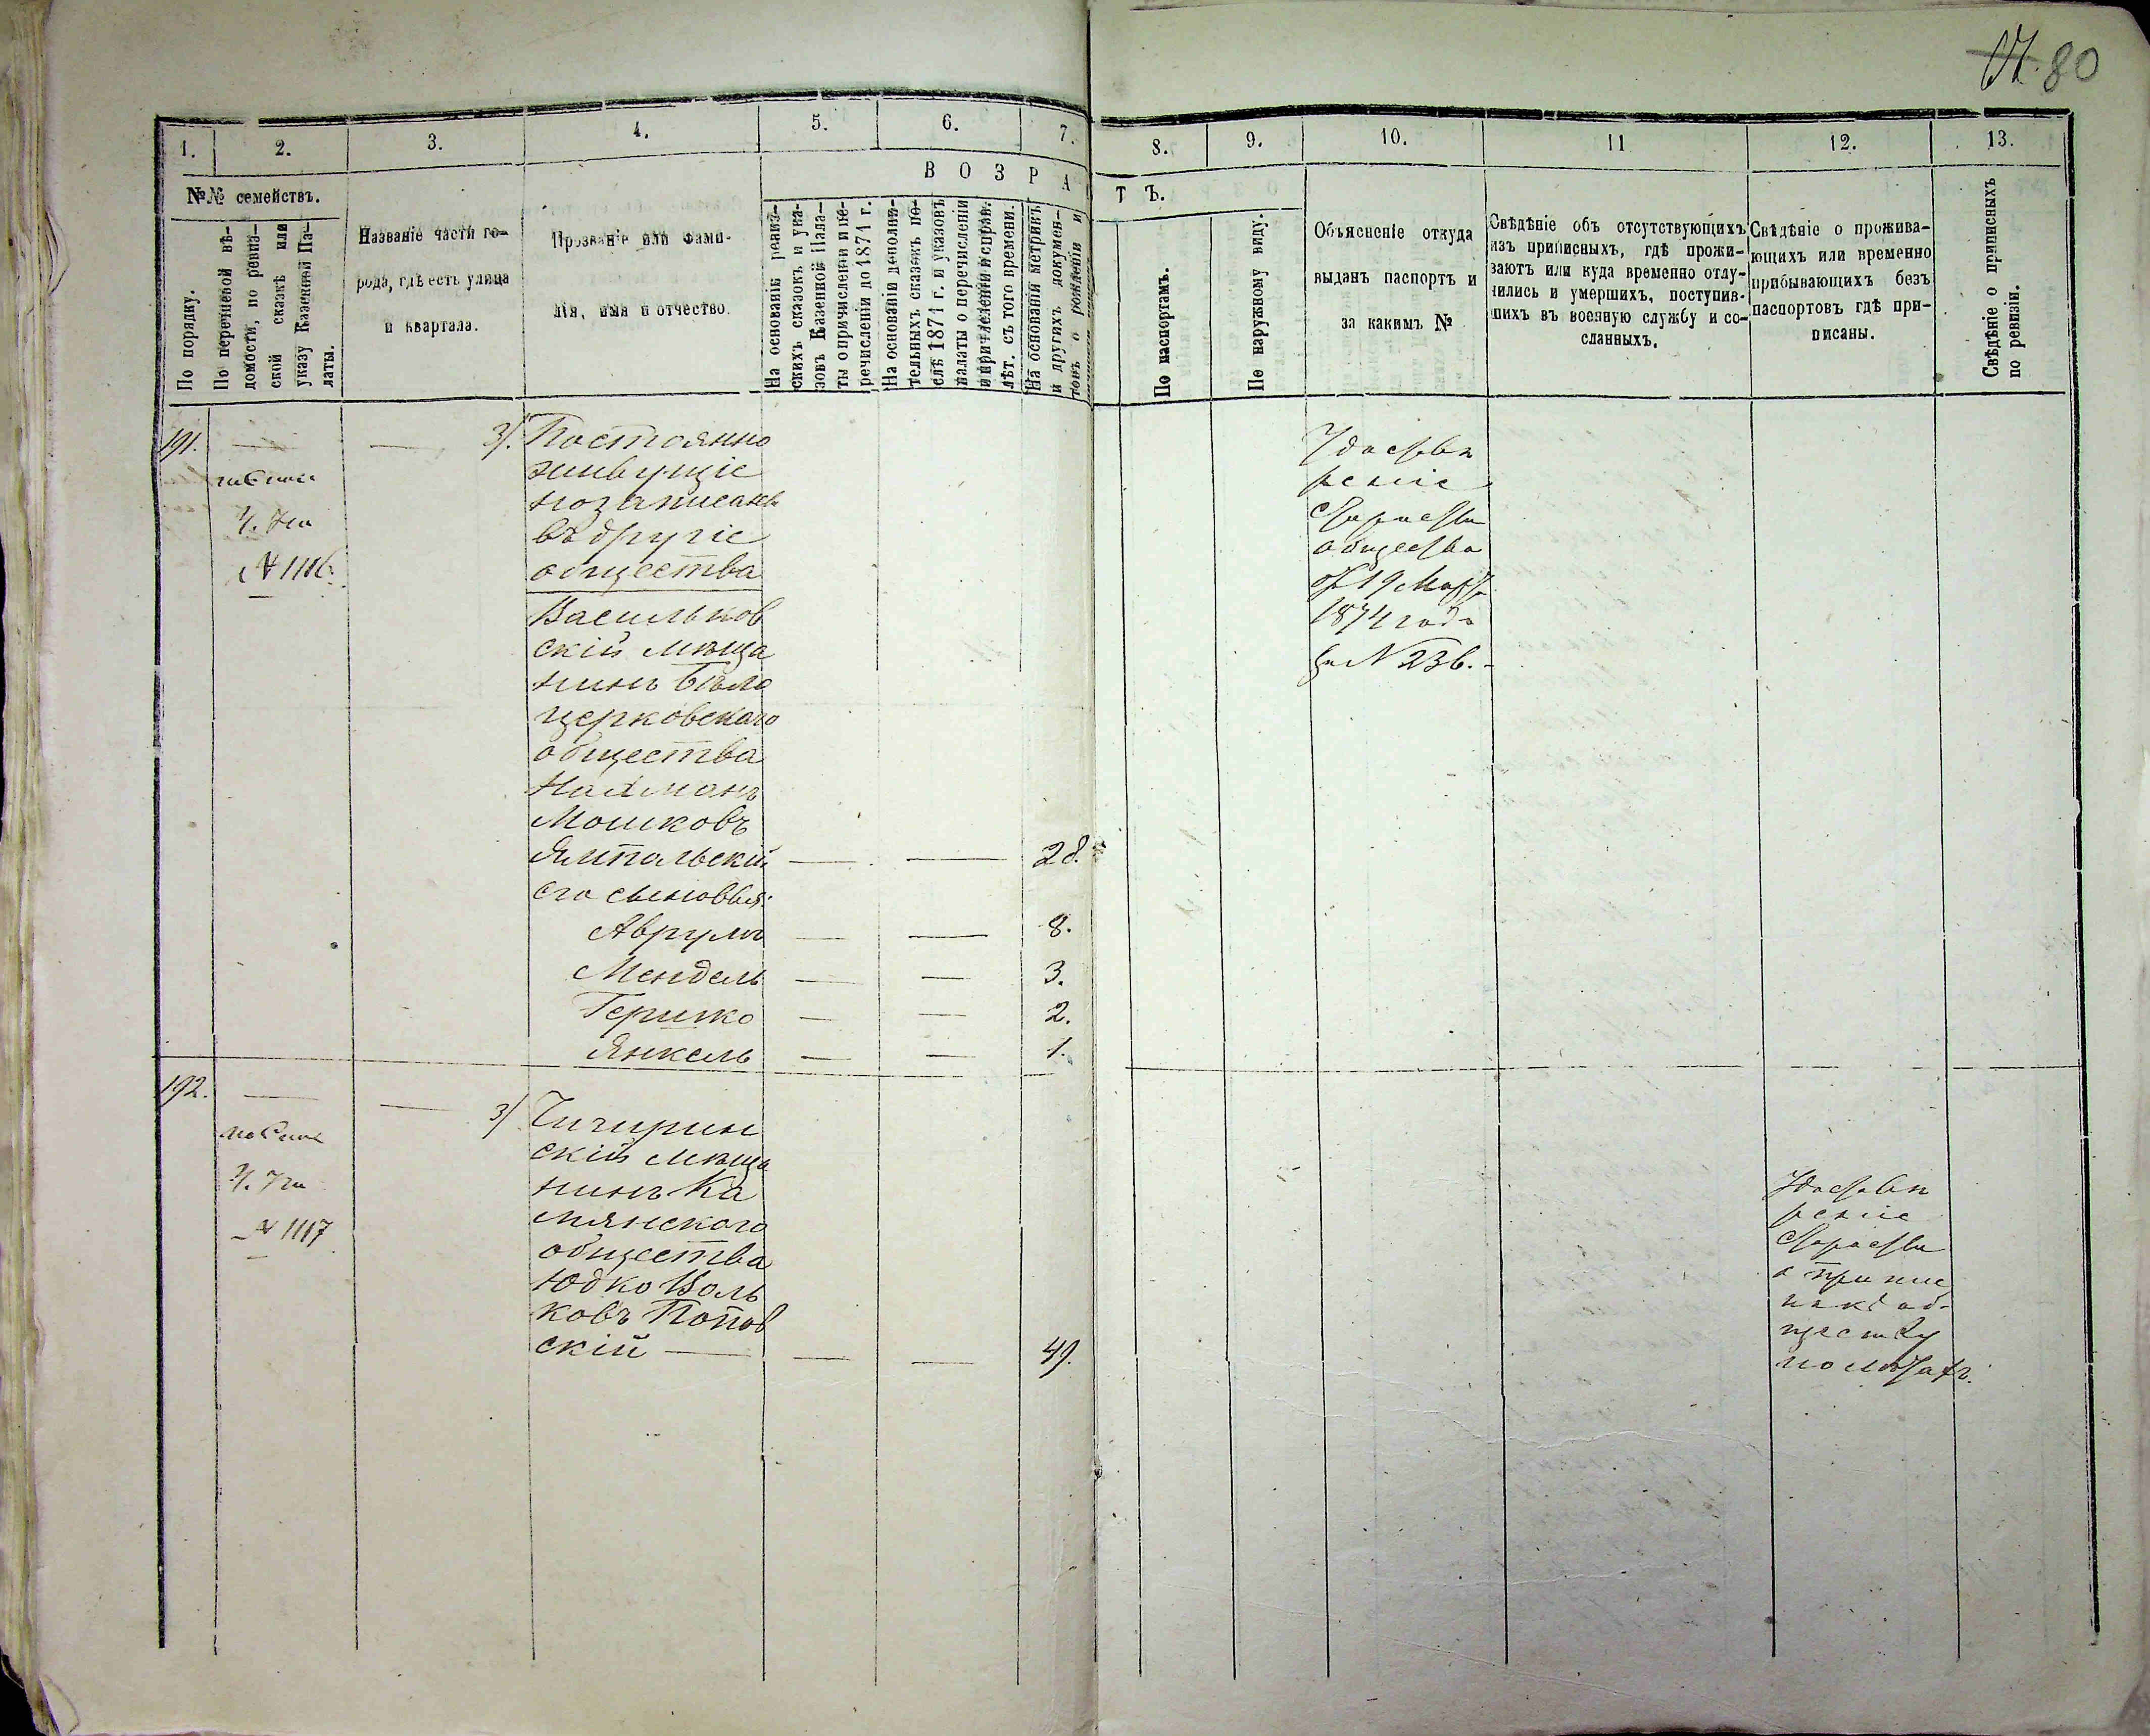 80
1.
2.
3.
4.
5.
6.
7.
8.
9.
10.
11
12.
13.
№№ семействъ.
В О З Р А
Т Ъ.
По порядку.
По перечневой вѣ-
домости, по ревиз-
ской сказкѣ или
указу Казенной Па-
латы.
Названіе части го-
рода, гдѣ есть улица
и квартала.
Прозваніе или фами-
лія, имя и отчество.
На основаніи ревиз-
скихъ сказокъ и ука-
зовъ Казенной Пала-
ты о причисленіи и пе-
речисленіи до 1871 г.
На основаніи дополни-
тельныхъ сказокъ по-
слѣ 1871 г. и указовъ
палаты о перечисленіи
лѣт. съ того времени.
На основаніи метрикъ
и другихъ докумен-
товъ о рожденіи и
По паспортамъ.
По наружному виду.
Объясненіе откуда
выданъ паспортъ и
за какимъ №
Свѣдѣніе объ отсутствующихъ
изъ приписныхъ, гдѣ прожи-
ваютъ или куда временно отлу-
чились и умершихъ, поступив-
шихъ въ военную службу и со-
сланныхъ.
Свѣдѣніе о прожива-
ющихъ или временно
прибывающихъ безъ
паспортовъ гдѣ при-
писаны.
Свѣдѣніе о приписныхъ
по ревизіи.
191.
№ 1116.
3/. Постоянно
живущіе
но записаны
въ другіе
общества
Васильков
скій мѣща
нинъ Бѣло
церковскаго
общества
Нахманъ
Мошковъ
Ямпольскій — — 28.
его сыновья:
Аврумъ — — 8.
Мендель — — 3.
Гершко — — 2.
Янкель — — 1.
Удостовѣ
реніе
Старосты
общества
отъ 19 Марта
1874 года
за № 236.
192.
№ 1117
3/ Чигирин
скій мѣща
нинъ Ка
мянского
общества
Юдко Воль
ковъ Попов
скій — — — 49.
Удостовѣ
реніе
Старосты
о припис
кѣ къ об-
ществу